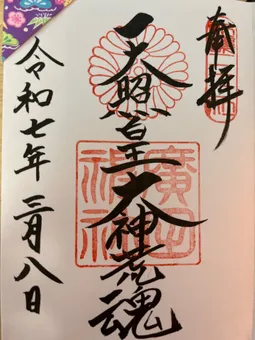 奉拝
天照皇大神荒魂
廣田
神社
令和七年三月八日